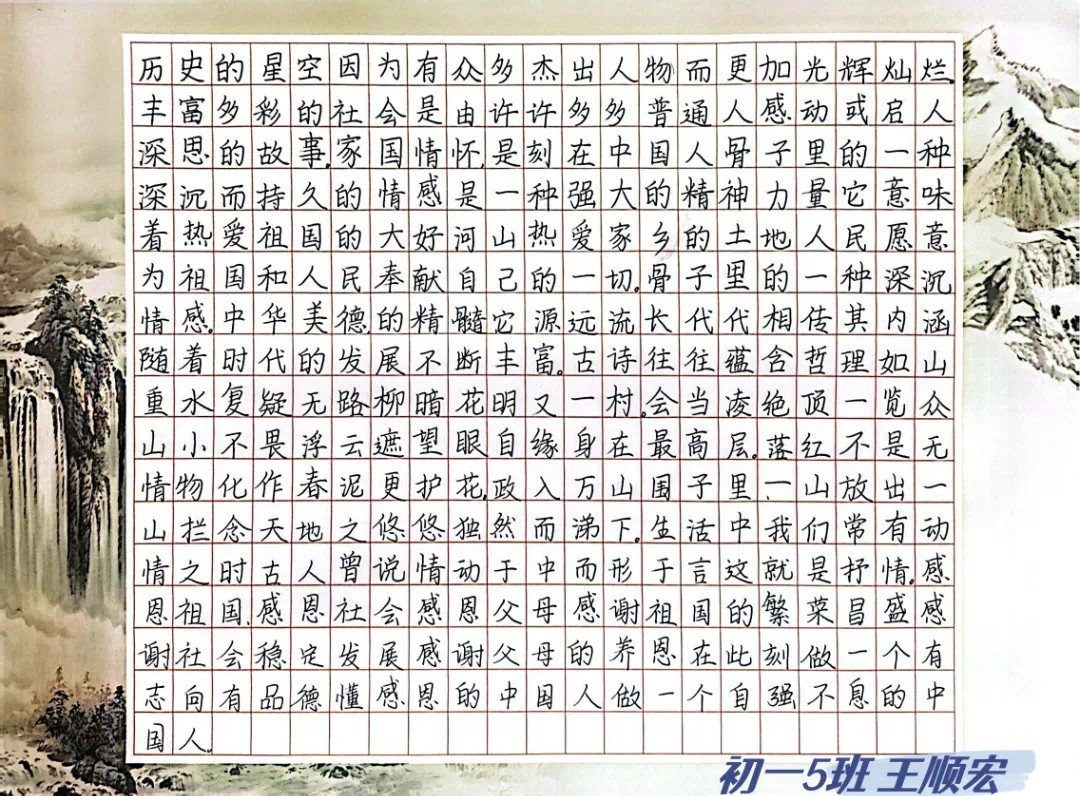 历史的星空因为有众多杰出人物而更加光辉灿烂.
丰富多彩的社会是由许许多多普通人感动或启人
深思的故事.家国情怀.是刻在中国人骨子里的一种
深沉而持久的情感是一种强大的精神力量它意味
着热爱祖国的大好河山热爱家乡的土地人民愿意
为祖国和人民奉献自己的一切.骨子里的一种深沉
情感.中华美德.的精髓它源远流长代代相传其内涵
随着时代的发展不断丰富.古诗往往蕴含哲理如山
重水复疑无路柳暗花明又一村.会当凌绝顶一览众
山小不畏浮云遮望眼自缘身在最高层.落红不是无
情物化作春泥更护花.政入万山围子里.一山放出一
山拦念天地之悠悠独然而涕下.生活中我们常有动
情之时古人曾说情动于中而形于言这就是抒情.感
恩祖国.感恩社会感恩父母感谢祖国的繁荣昌盛感
谢社会稳定发展感谢父母的养恩在此刻做一个有
志向有品德懂感恩的中国人做一个自强不息的中
国人.
初一5班 王顺宏